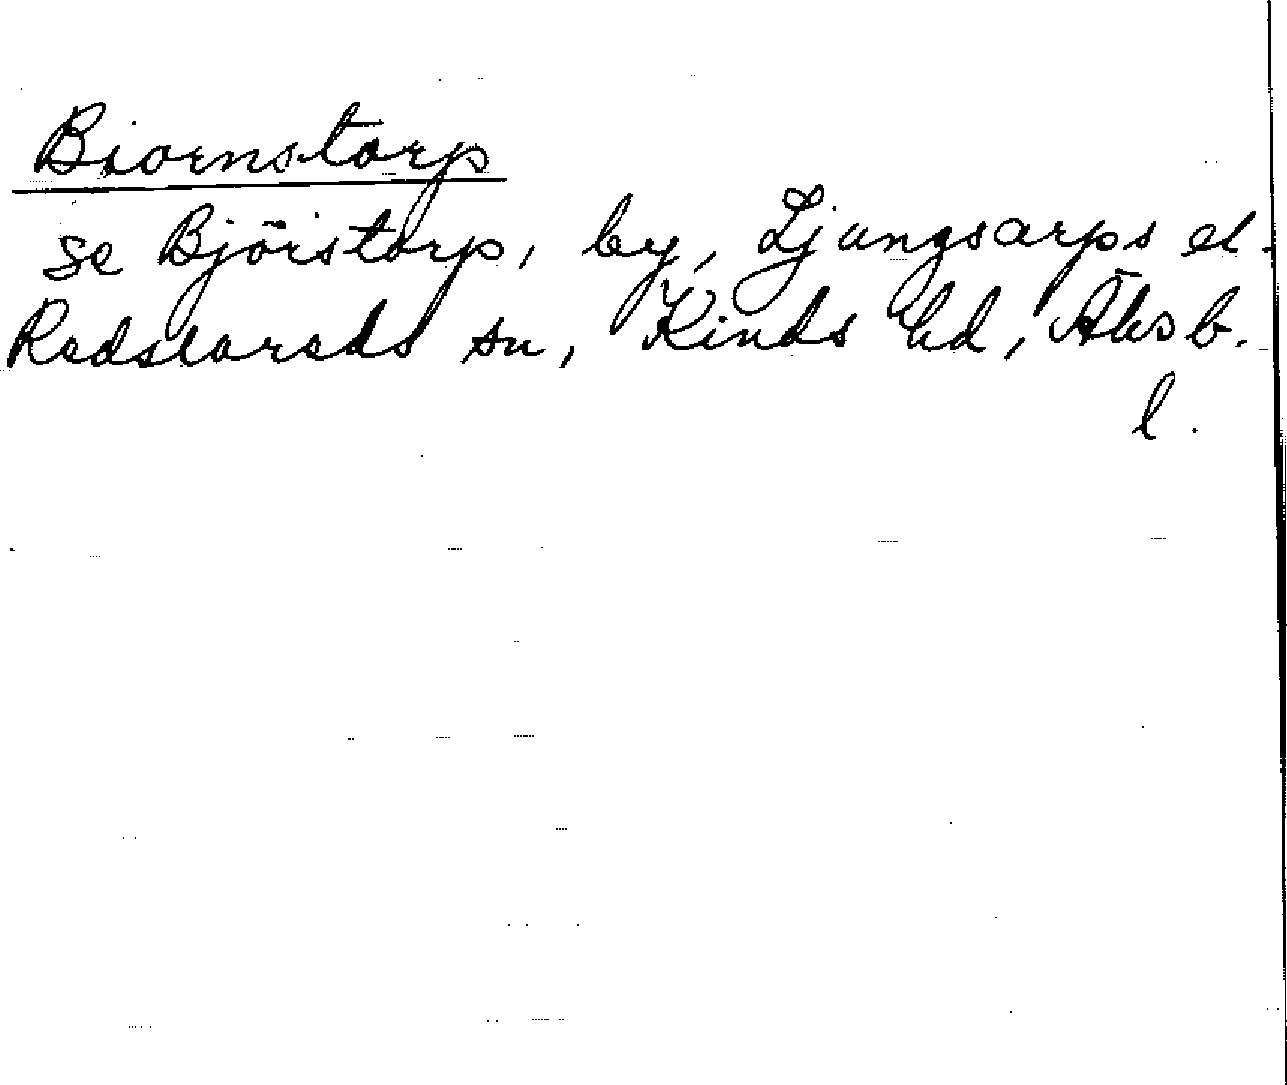 Biornstorp
se Björstorp, by, Ljungsarps el.
Redslareds sn, Kinds hd, Älvsb.
l.